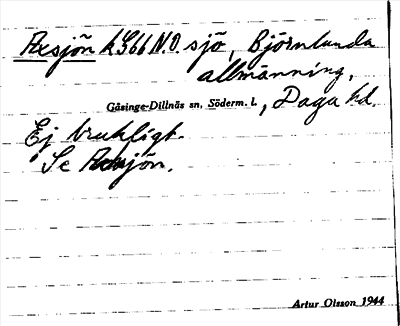 Axsjön k566 N.O. sjö, Björnlunda
allmänning,
Gåsinge-Dillnäs sn, Söderm. l., Daga hd.
Ej brukligt.
Se sjön.
Artur Olsson 1944